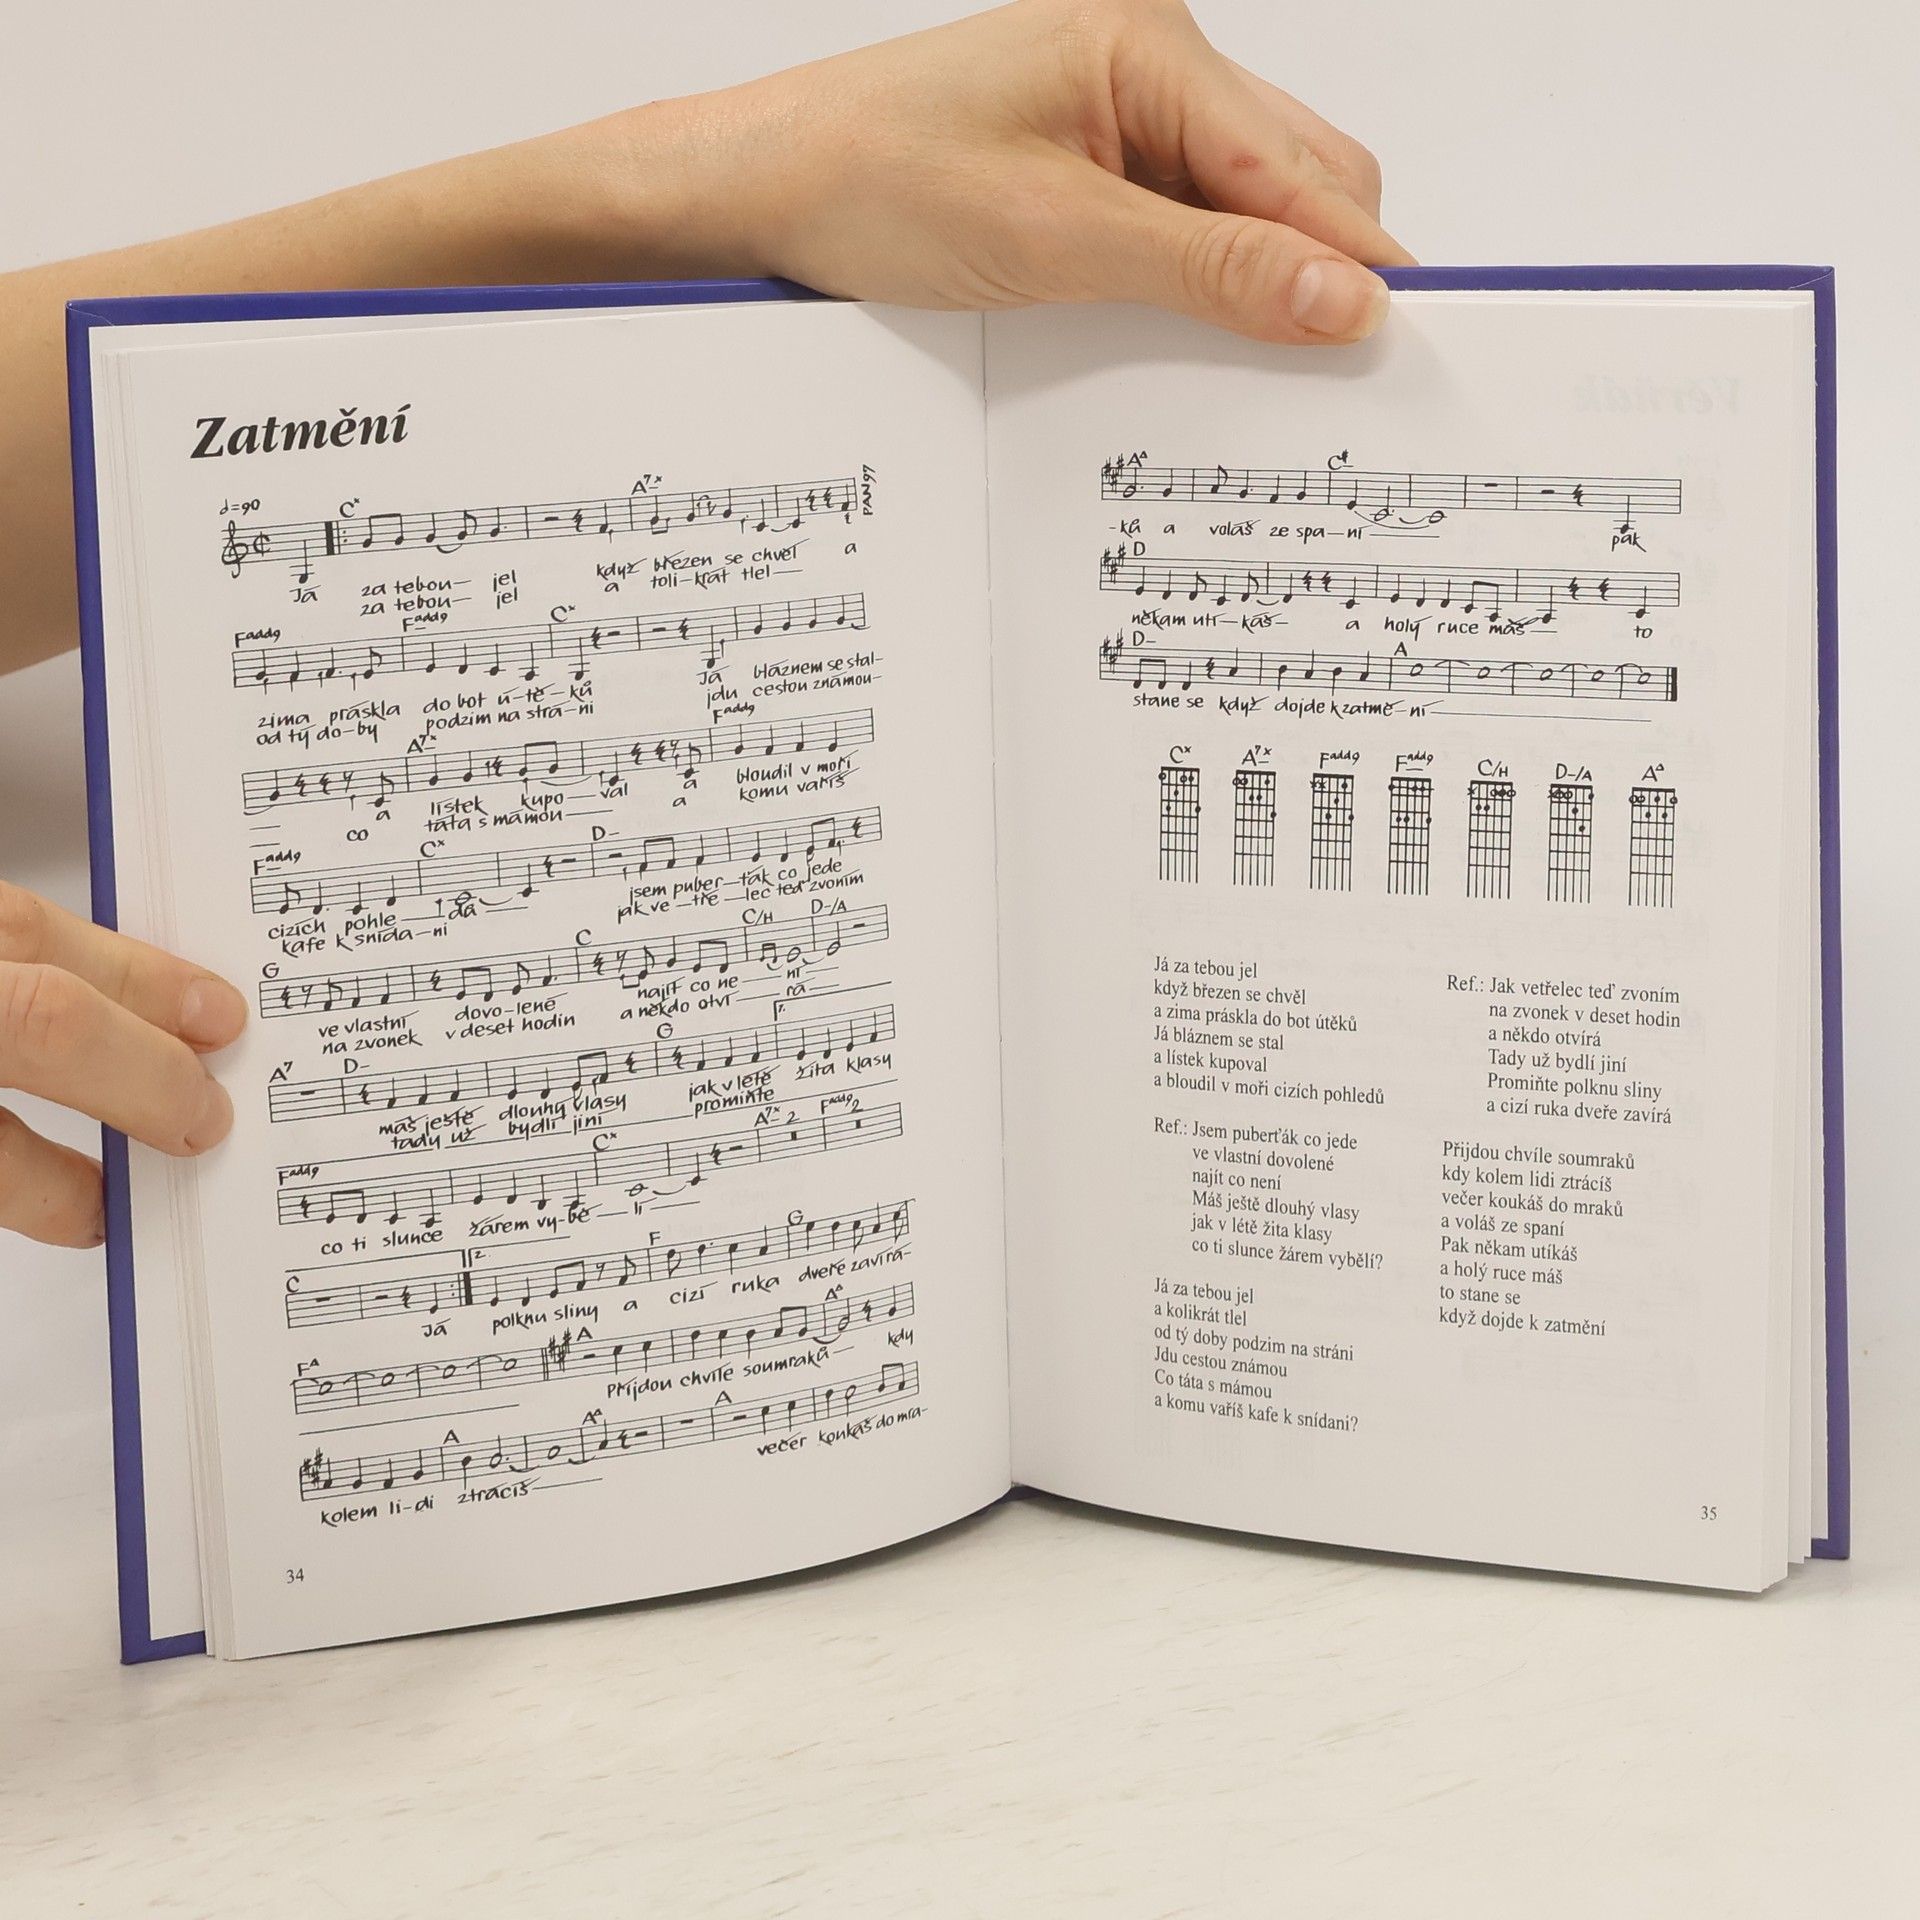 Zatmění
♩=90
Cˣ
A⁷ˣ
PAN97
Já za tebou— jel když březen se chvěl a
za tebou— jel a toli-krát tlel—
Fadd9 Fadd9 Cˣ
zima práskla do bot ú-tě-ků Já bláznem se stal-
od tý do-by podzim na strá-ni jdu cestou známou-
A⁷ˣ Fadd9
a lístek kupo—val a bloudil v moři
co táta s mámou— a komu vaříš
Fadd9 Cˣ D-
cizích pohle—dů jsem puber-ťák co jede
kafe k snída-ni jak ve-tře-lec teď zvoním
G C C/H D-/A
ve vlastní dovo-lené najít co ne—ní—
na zvonek v deset hodin a někdo otví—rá—
A7 D- G 1.
máš ještě dlouhý vlasy jak v létě žita klasy
tady už bydlí jiní promiňte
Fadd9 Cˣ A⁷ˣ 2 Fadd9 2
co ti slunce žárem vy-bě—lí—
C 2. F G
Já polknu sliny a cizí ruka dveře zavírá-
F△ A A△
Přijdou chvíle soumraků— kdy
A A△ A
kolem li-di ztrácíš— večer koukáš do mra-
34
A△ C#-
-ků a voláš ze spa—ní— pak
D
někam utí-káš- a holý ruce máš— to
D- A
stane se když dojde k zatmě-ní—
Cˣ A⁷ˣ Fadd9 Fadd9 C/H D-/A A△
Já za tebou jel
když březen se chvěl
a zima práskla do bot útěků
Já bláznem se stal
a lístek kupoval
a bloudil v moři cizích pohledů
Ref.: Jsem puberťák co jede
ve vlastní dovolené
najít co není
Máš ještě dlouhý vlasy
jak v létě žita klasy
co ti slunce žárem vybělí?
Já za tebou jel
a kolikrát tlel
od tý doby podzim na stráni
Jdu cestou známou
Co táta s mámou
a komu vaříš kafe k snídani?
Ref.: Jak vetřelec teď zvoním
na zvonek v deset hodin
a někdo otvírá
Tady už bydlí jiní
Promiňte polknu sliny
a cizí ruka dveře zavírá
Přijdou chvíle soumraků
kdy kolem lidi ztrácíš
večer koukáš do mraků
a voláš ze spaní
Pak někam utíkáš
a holý ruce máš
to stane se
když dojde k zatmění
35